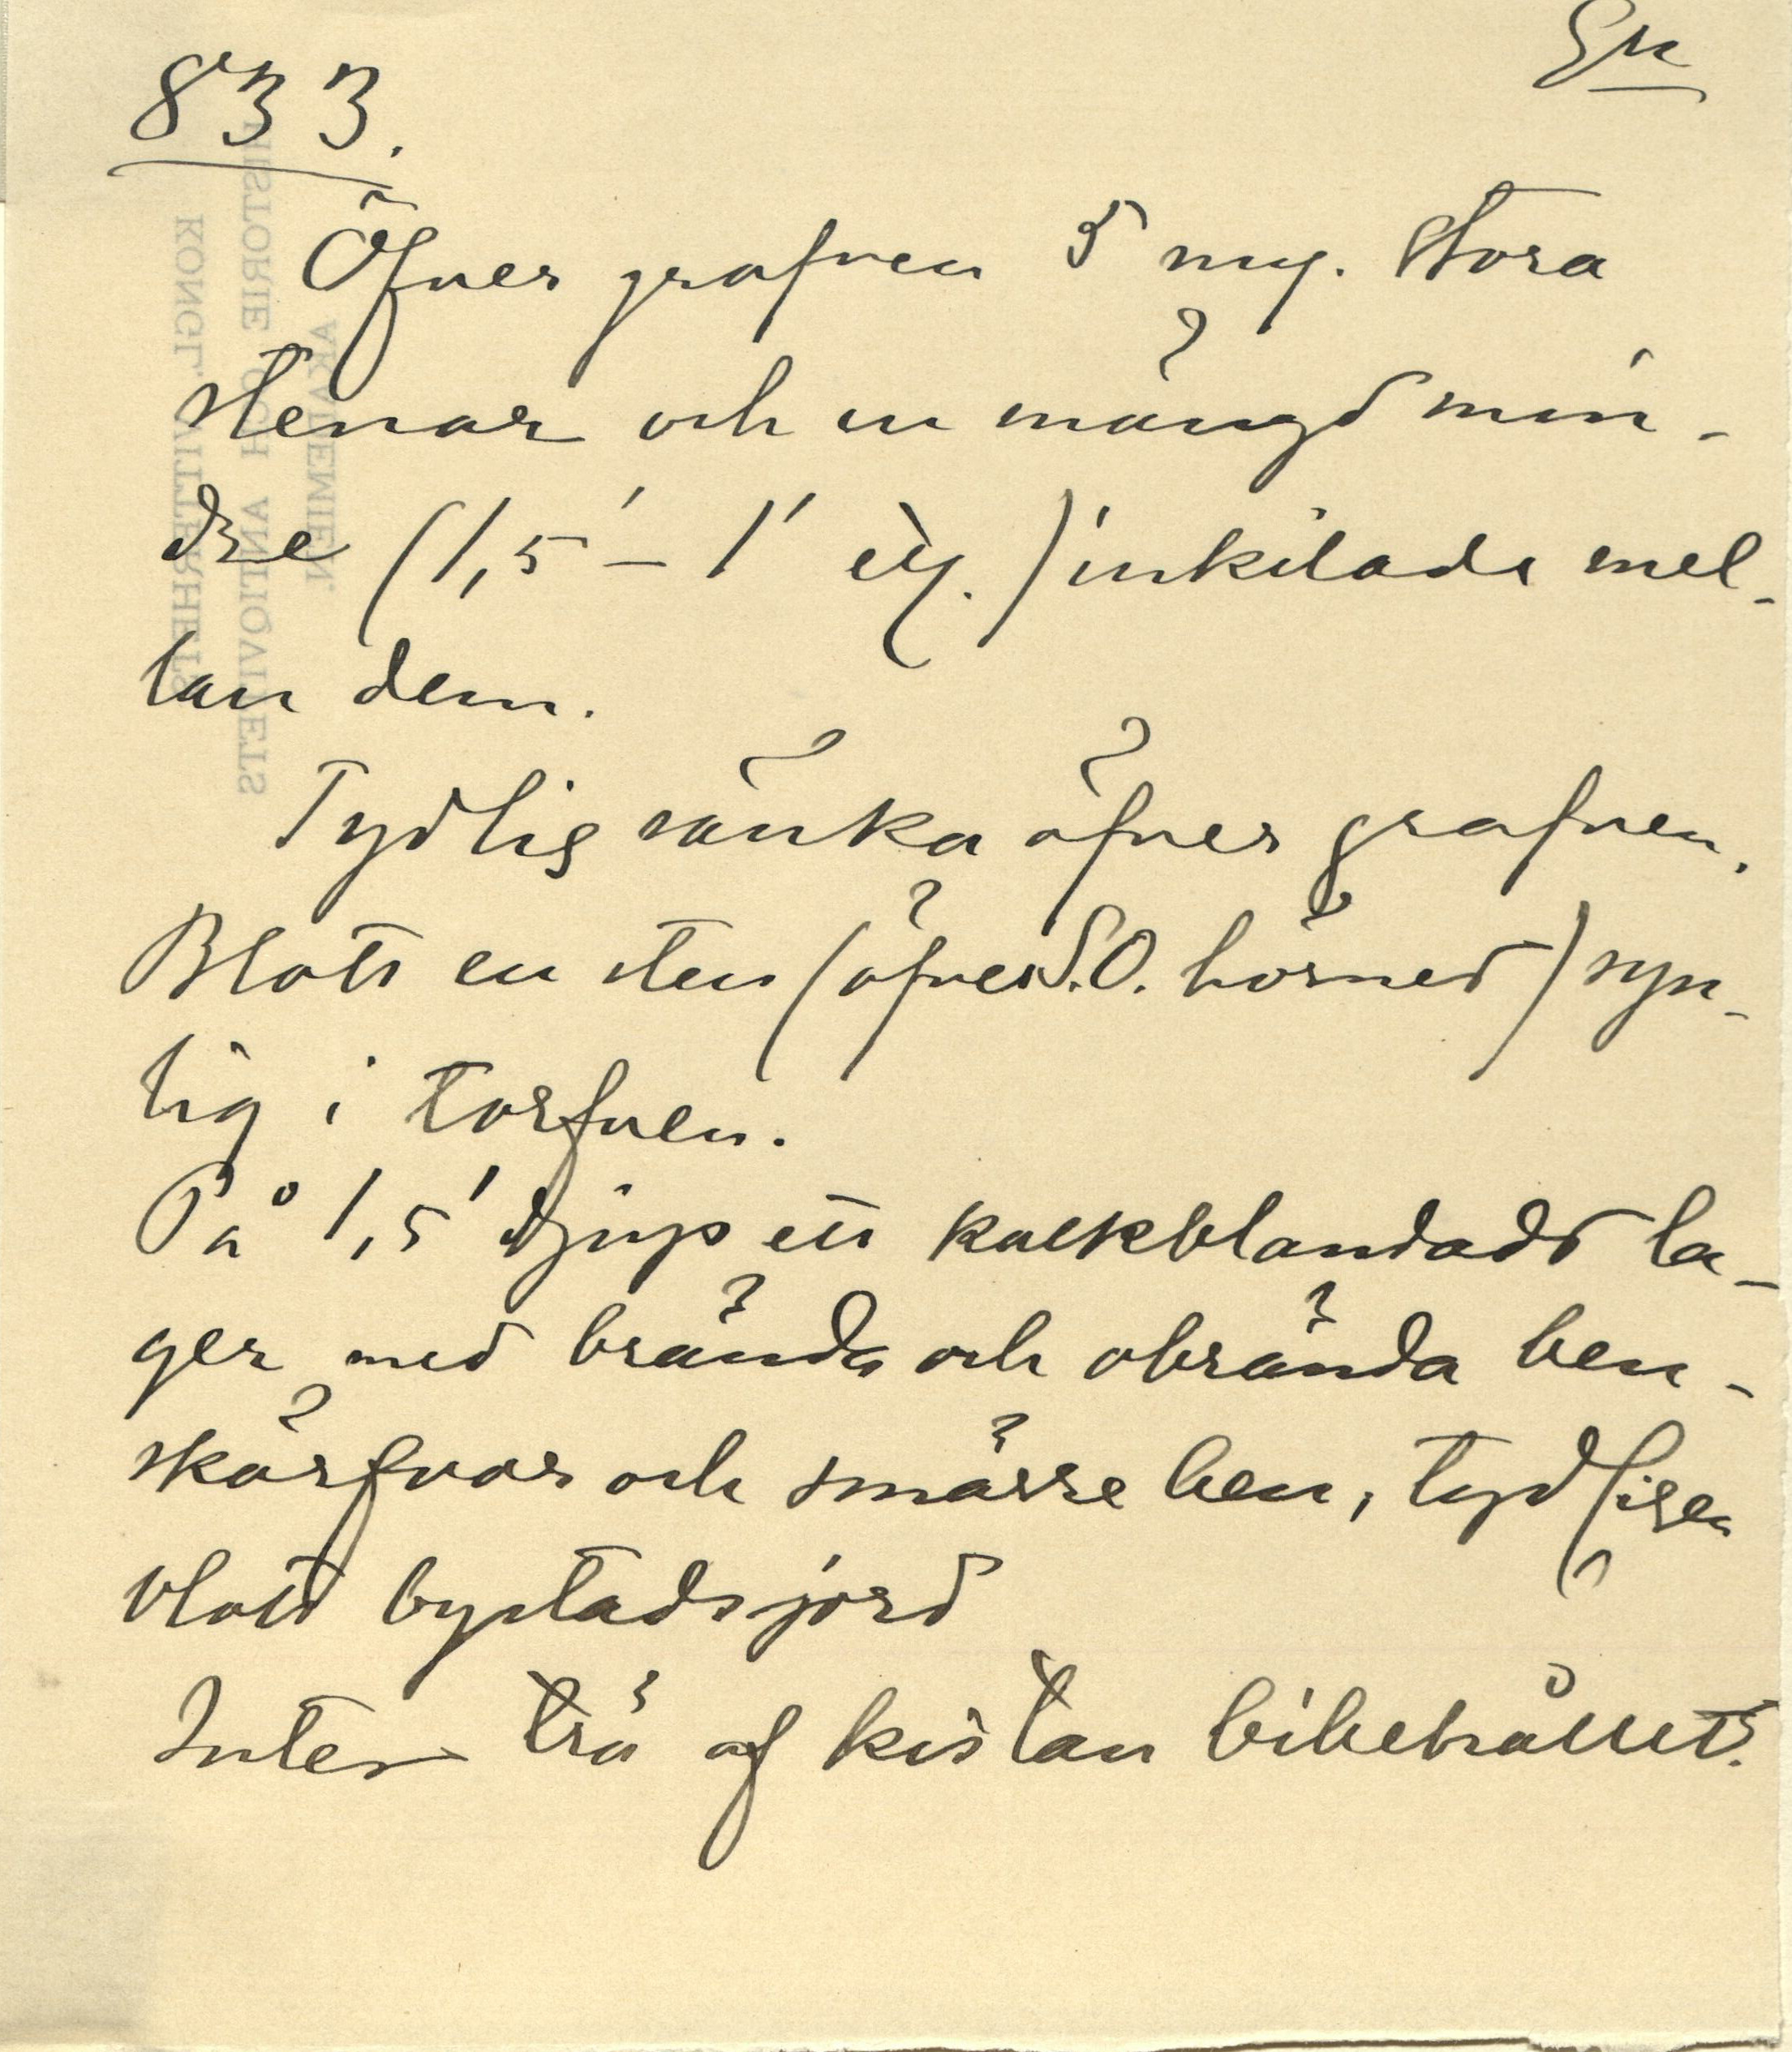 833.
Öfver grafven 5 myc. stora
stenar och en mängd min-
dre (1,5' – 1' etc.) inkilade mel-
lan dem.
Tydlig sänka öfver grafven.
Blott en sten (öfver S.O. hörnet) syn-
lig i torfven.
På 1,5' djup ett kalkblandadt la-
ger med brända och obrända ben-
skärfvor och smärre ben, tydligen
blott bystadsjord
Intet trä af kistan bibehållet.
KONGL. VITTERHETS
HISTORIE OCH ANTIQVITETS
AKADEMIEN.